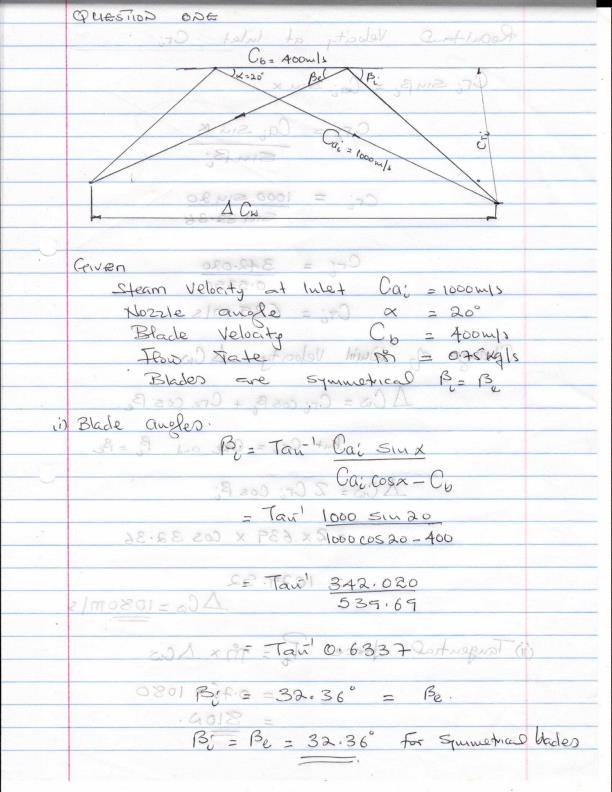 QUESTION ONE
Cb = 400m/s
α=20° βe βi
Cai = 1000m/s
Cri
Δ Cω
Given
Steam Velocity at Inlet Cai = 1000m/s
Nozzle angle α = 20°
Blade Velocity Cb = 400m/s
Flow rate ṁ = 0.75 Kg/s
Blades are symmetrical βi = βe
i) Blade angles.
βi = Tan⁻¹ Cai sin α
Cai cos α – Cb
= Tan⁻¹ 1000 sin 20
1000 cos 20 - 400
= Tan⁻¹ 342.020
539.69
= Tan⁻¹ 0.6337
βi = 32.36° = βe.
βi = βe = 32.36° for symmetrical blades